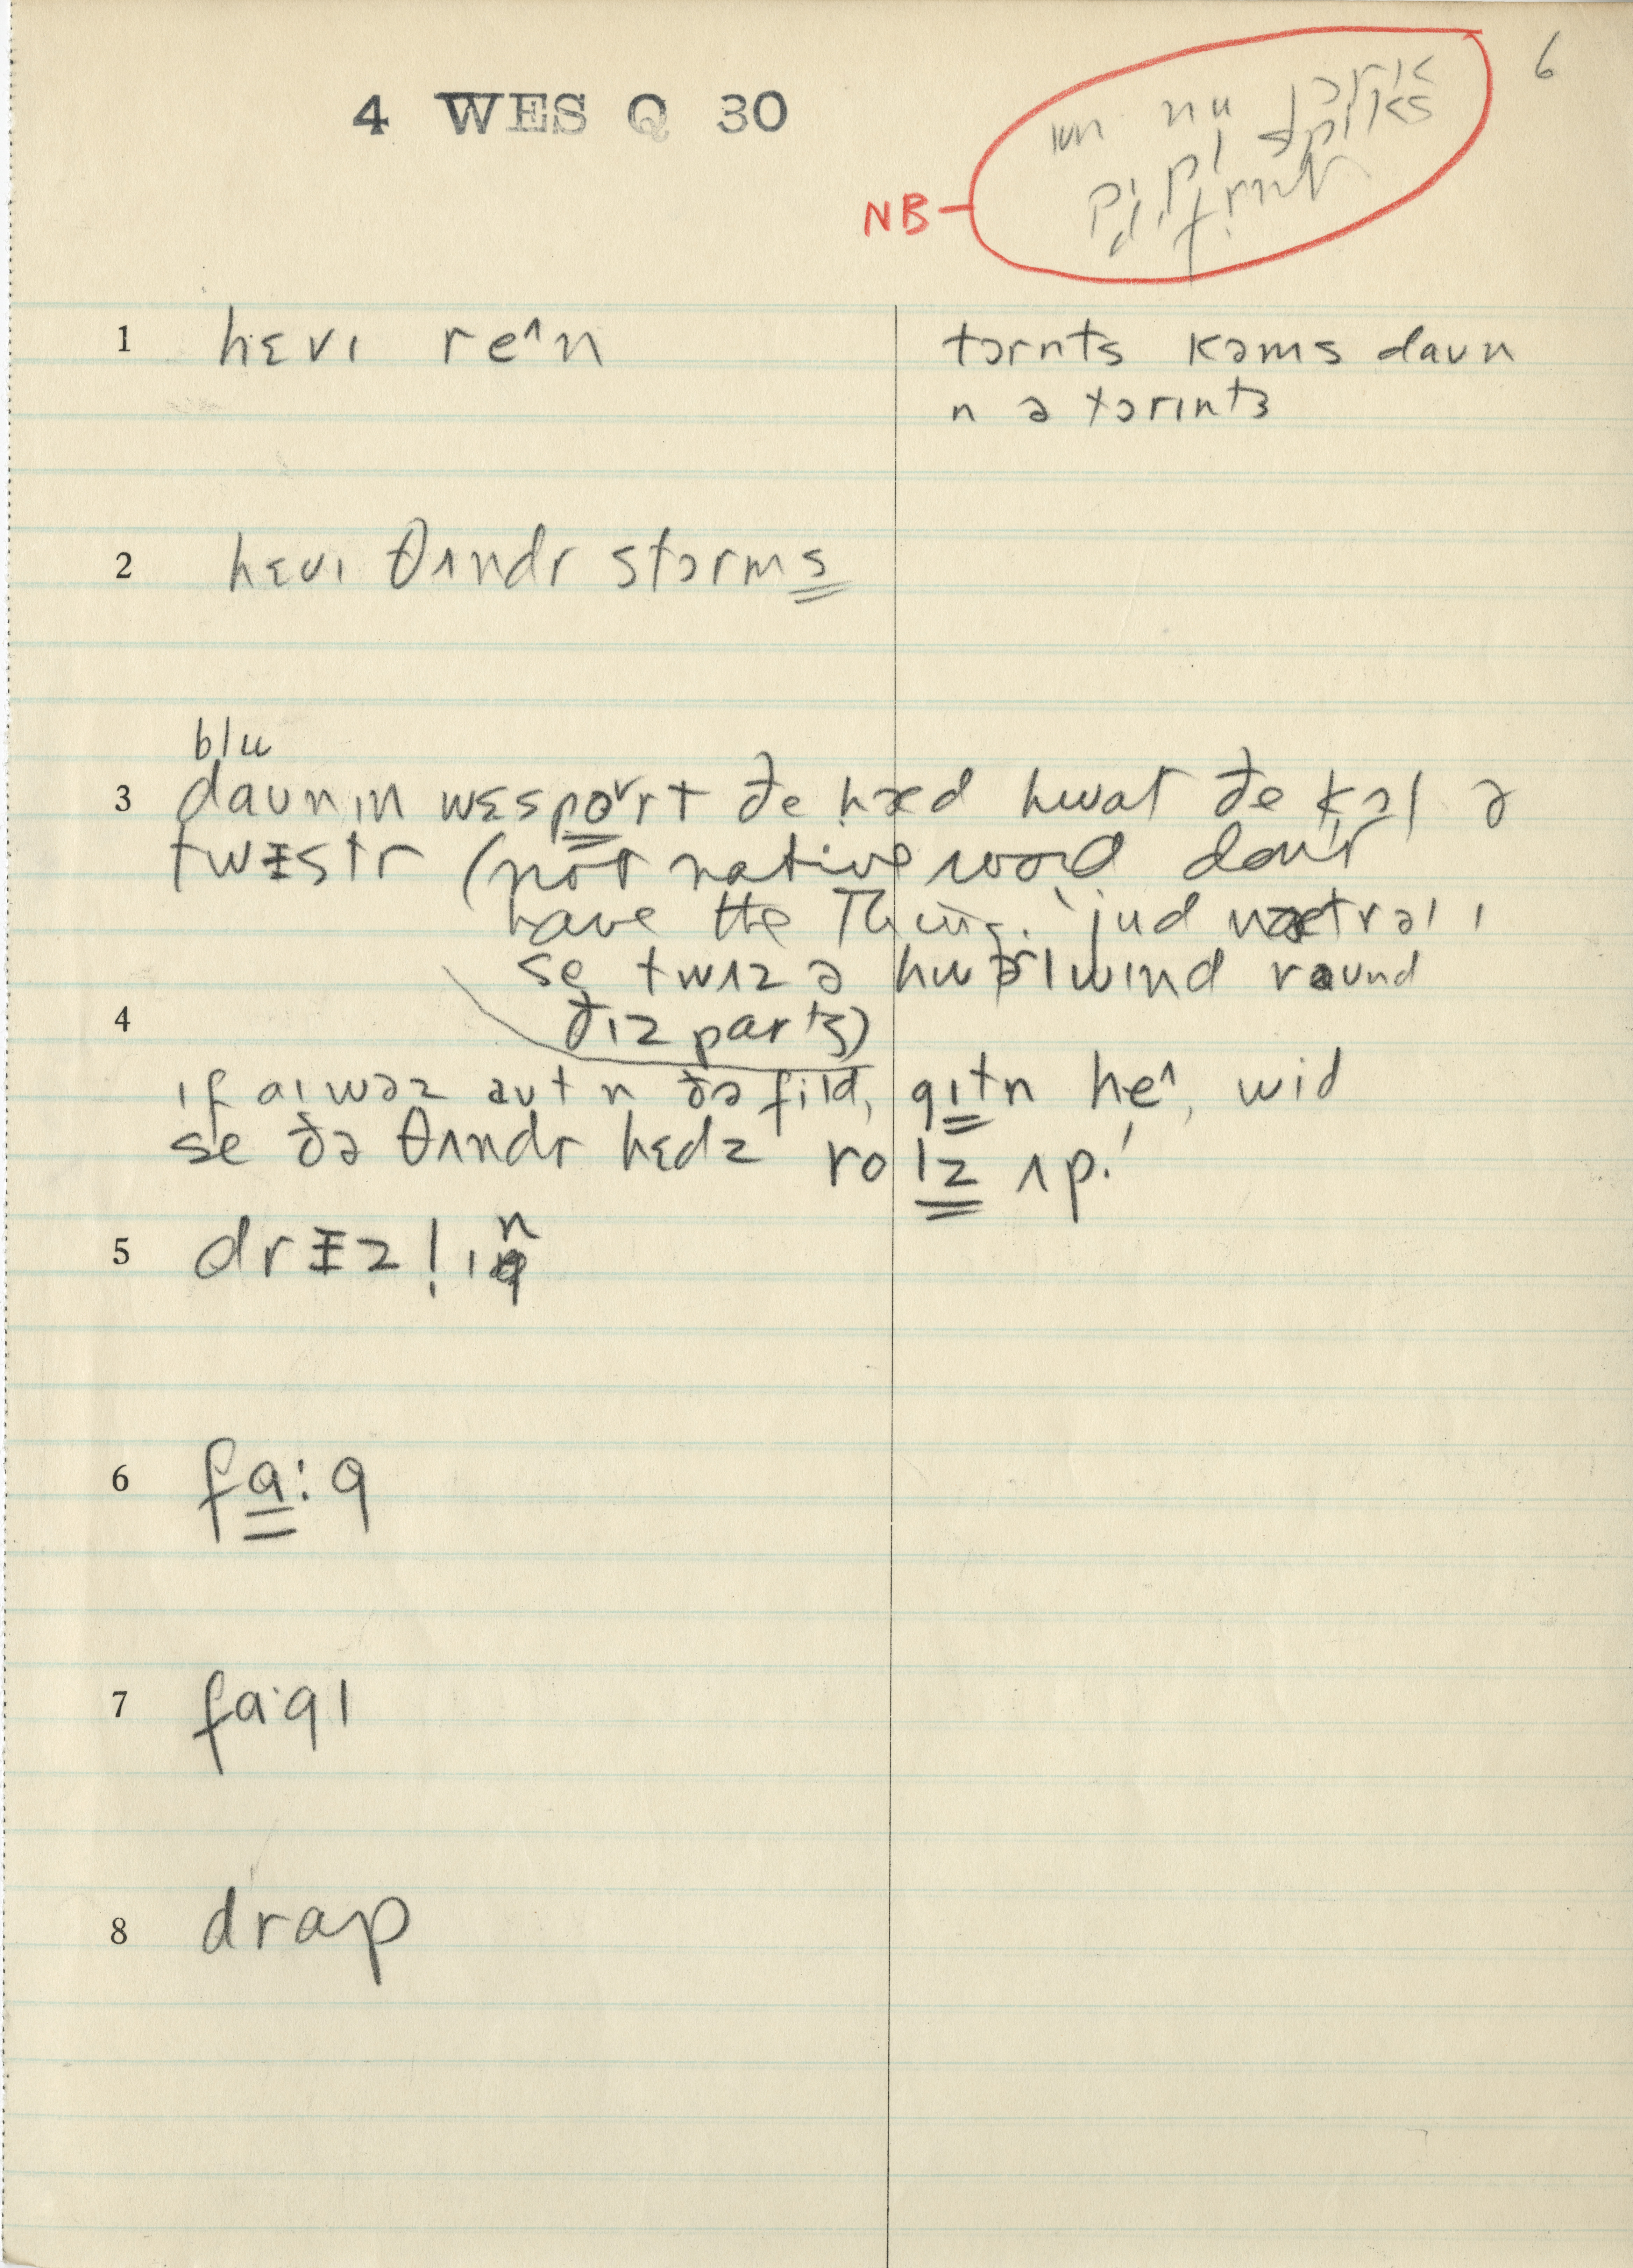 6
4 WES Q 30
ɪn nu jɔrk
pipl spiks
difrnt
NB
1 hɛvɪ re^n tɔrnts kəms daʊn
n ə tɔrɪnts
2 hɛvɪ θʌndr stɔrms
blu
3 daʊn ɪn wɛsport ðe hæd hwat ðe kɔl ə
twɨstr (not native word don't
have the Thing. 'jud nætrəlɪ
se twʌz ə hwərlwɪnd raʊnd
4 ðɪz parts)
ɪf aɪ wəz aʊt n ðə fild, gɪtn he^, wid
se ðə θʌndr hɛdz rolz ʌp!
5 drɨzlɪn
6 fa:g
7 fa·gl
8 drap